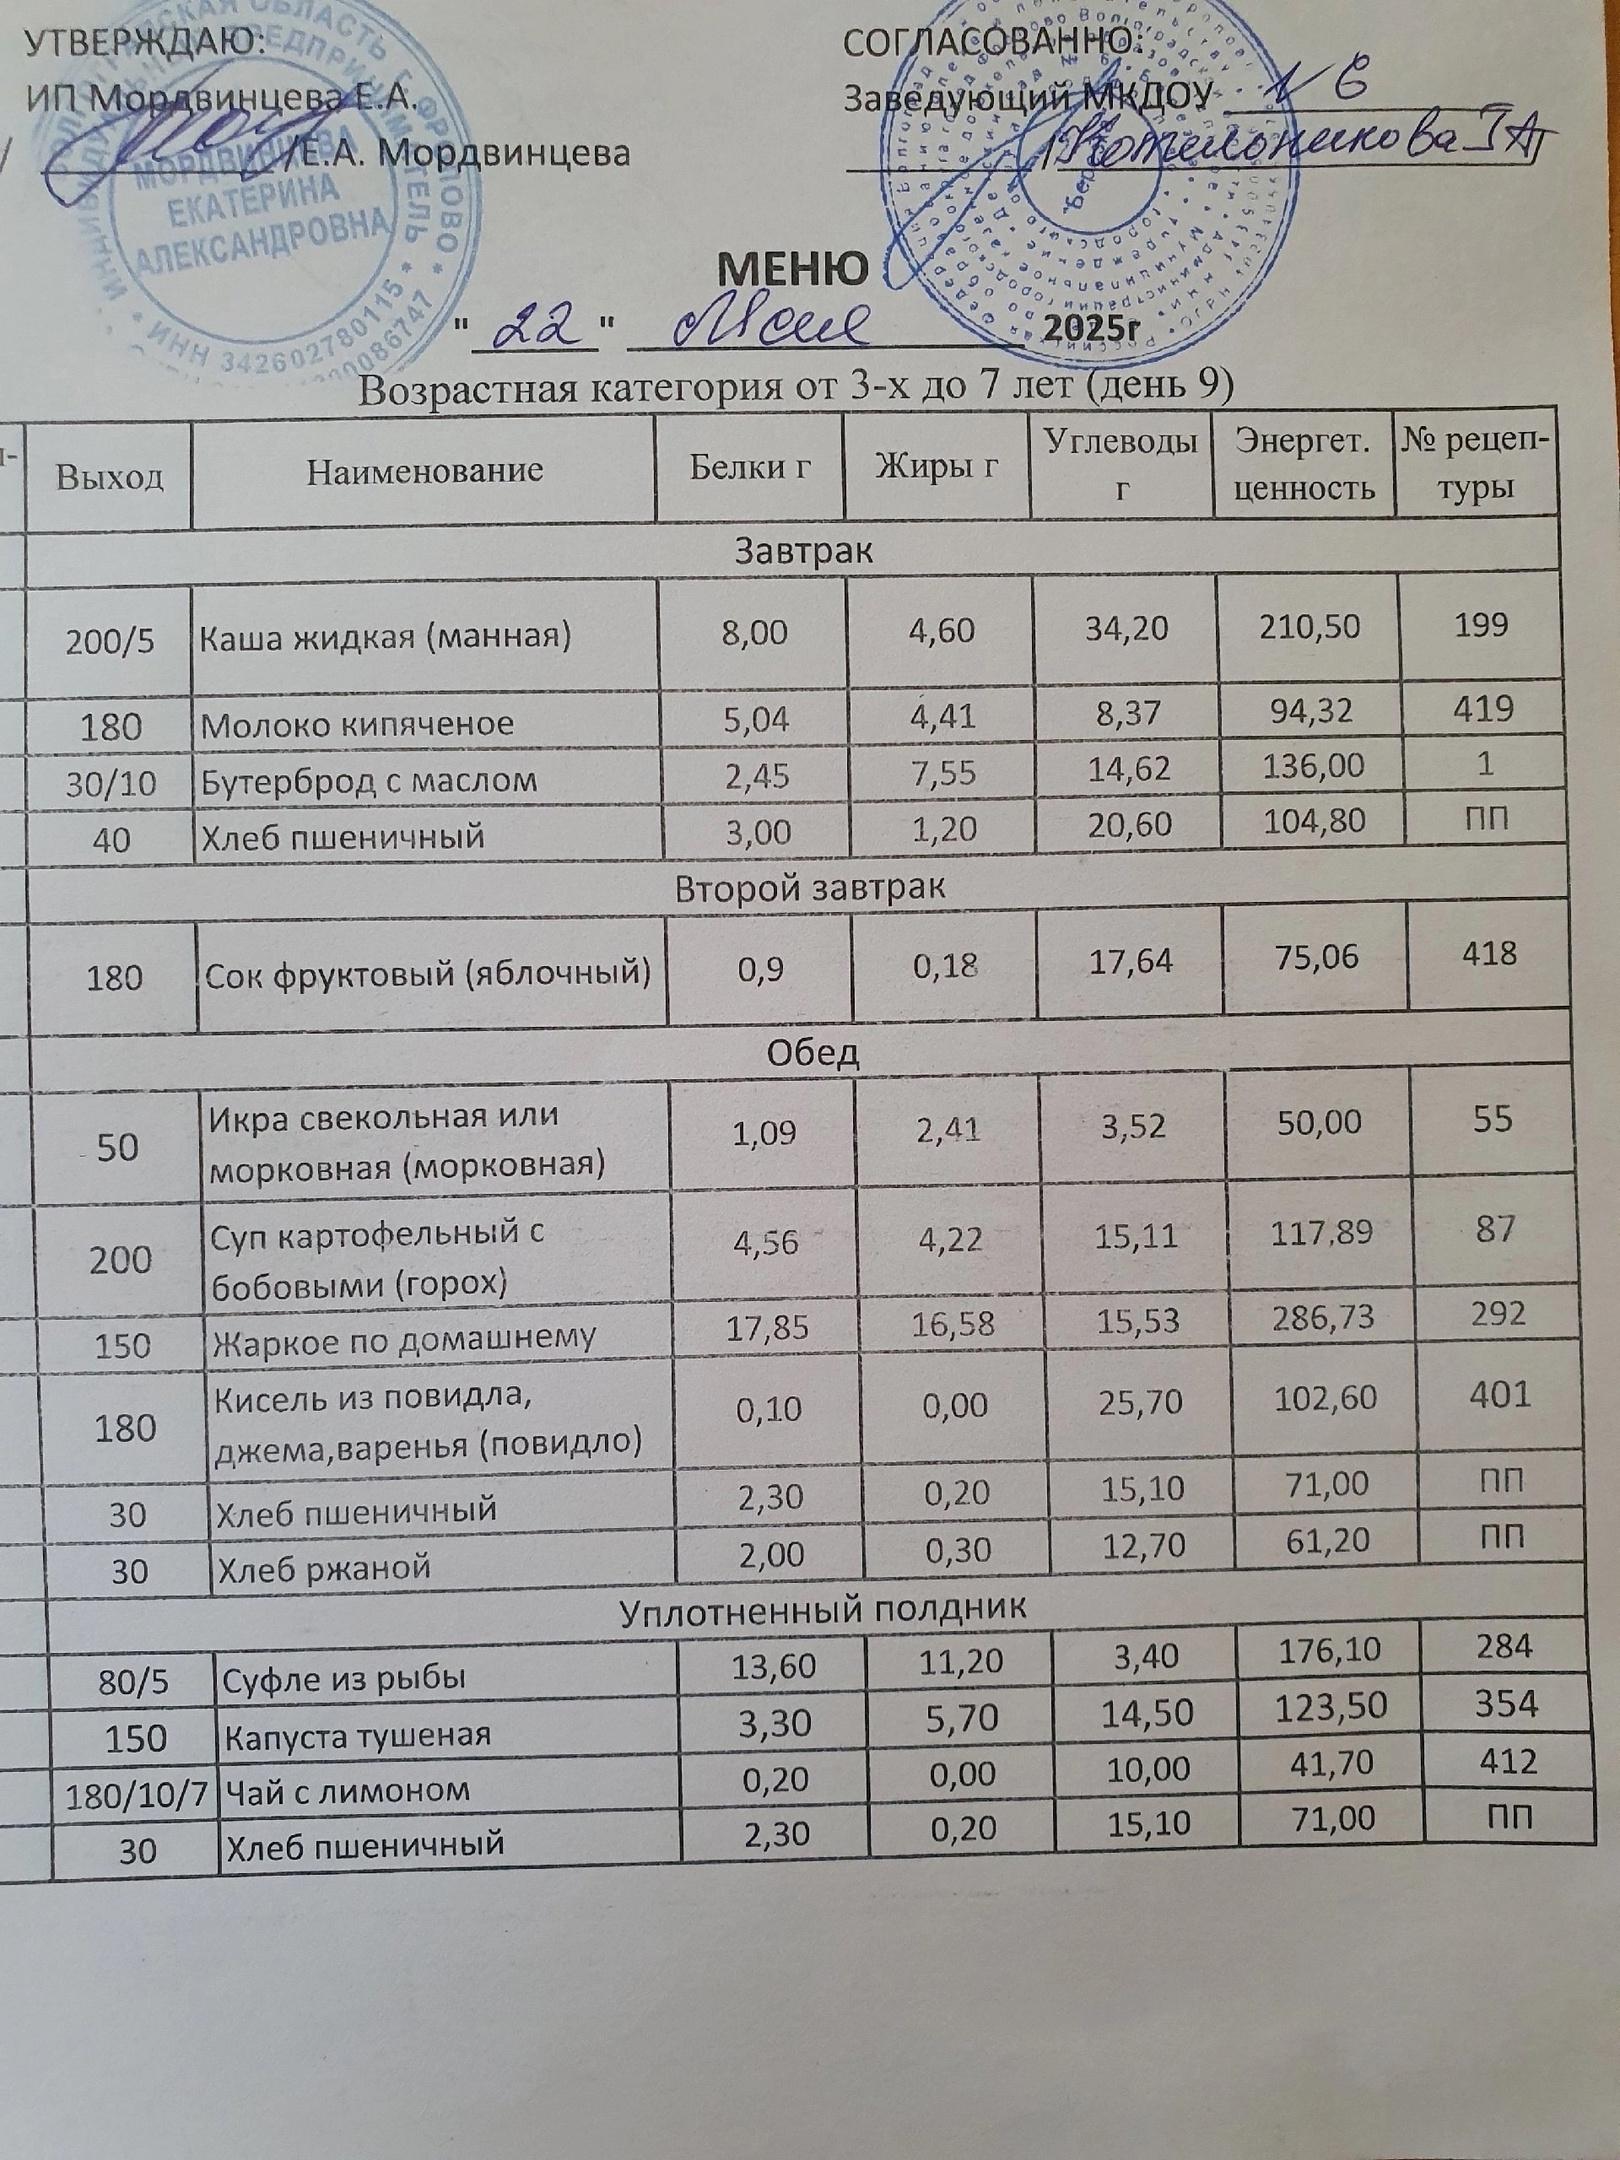 УТВЕРЖДАЮ:
ИП Мордвинцева Е.А.
/Е.А. Мордвинцева
МОРДВИНЦЕВА
ЕКАТЕРИНА
АЛЕКСАНДРОВНА
ИНН 342602780115
СОГЛАСОВАННО:
Заведующий МКДОУ 6
МЕНЮ
" 22 " Мая 2025г
Возрастная категория от 3-х до 7 лет (день 9)
Выход Наименование Белки г Жиры г Углеводы г Энергет. ценность № рецеп-туры
Завтрак
200/5 Каша жидкая (манная) 8,00 4,60 34,20 210,50 199
180 Молоко кипяченое 5,04 4,41 8,37 94,32 419
30/10 Бутерброд с маслом 2,45 7,55 14,62 136,00 1
40 Хлеб пшеничный 3,00 1,20 20,60 104,80 ПП
Второй завтрак
180 Сок фруктовый (яблочный) 0,9 0,18 17,64 75,06 418
Обед
50 Икра свекольная или морковная (морковная) 1,09 2,41 3,52 50,00 55
200 Суп картофельный с бобовыми (горох) 4,56 4,22 15,11 117,89 87
150 Жаркое по домашнему 17,85 16,58 15,53 286,73 292
180 Кисель из повидла, джема,варенья (повидло) 0,10 0,00 25,70 102,60 401
30 Хлеб пшеничный 2,30 0,20 15,10 71,00 ПП
30 Хлеб ржаной 2,00 0,30 12,70 61,20 ПП
Уплотненный полдник
80/5 Суфле из рыбы 13,60 11,20 3,40 176,10 284
150 Капуста тушеная 3,30 5,70 14,50 123,50 354
180/10/7 Чай с лимоном 0,20 0,00 10,00 41,70 412
30 Хлеб пшеничный 2,30 0,20 15,10 71,00 ПП